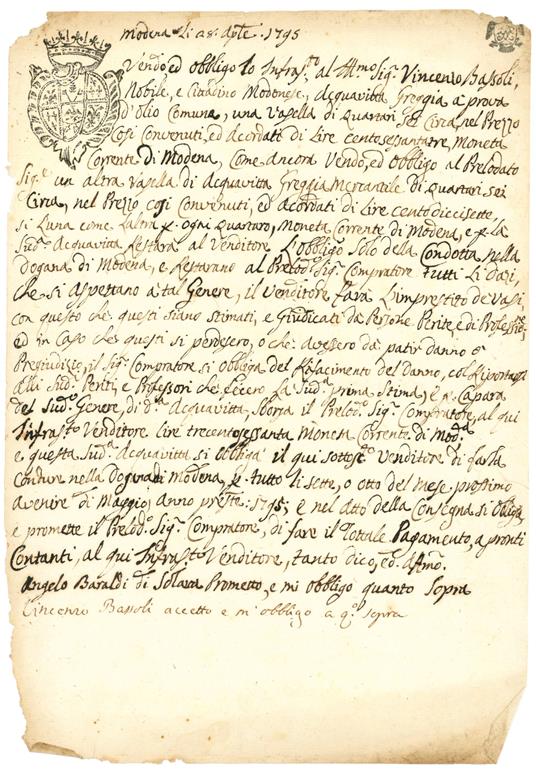 Modena Li 28: Aple: 1795
Vendo, ed obbligo Io Infrastto al Illmo Sigr: Vincenzo Bassoli,
Nobile, e Cittadino Modenese, Acquavitta Greggia a prova
d'Olio Comune, una Vasella di Quartari Sei Circa, nel Prezzo
Cosi Convenuti, ed acordati di Lire centosessantatre, Moneta
Corrente di Modena, Come ancora Vendo, ed obbligo al Prelodato
Sigr: un altra Vasella di Acquavitta Greggia Mercantile di Quartari sei
Circa, nel Prezzo cosi Convenuti, ed acordati di Lire centodiecisette,
si L'una come L'altra p. ogni Quartaro, Moneta Corrente di Modena, e p. la
Suda: Acquavitta Restarà al Venditore L'obbligo solo della Condotta nella
Dogana di Modena, e Restarano al Preldto: Sigr: Compratore Tutti Li Dazi,
che si aspettano a tal Genere, il Venditore Farà L'imprestito de Vasi,
con questo che questi siano stimati, e Giudicati da Persone Perite, e di Professione,
ed in Caso che questi si perdesero, o che avessero da patir danno o
Pregiudizio, il Sigr: Compratore si obbliga del Rifacimento del Danno, col Riportarsi
alli Sudi: Periti, e Professori che fecero La Suda: prima Stima; e p. Capara
del Sudo: Genere, di da: Acquavitta, Sborsa il Prelto: Sigr: Compratore, al qui
Infrasto: Venditore Lire trecentosessanta Moneta Corrente di Moda:
e questa Suda: Acquavitta si obbliga il qui sottosco: Venditore di farla
Condure nella Dogana di Modena, p. tutto li sette, o otto del Mese prossimo
avenire di Maggio, anno preste: 1795; e nel Atto della Consegna si obbliga,
e promette il Prelodo: Sigr: Compratore, di fare il Tottale Pagamento, a pronti
Contanti, al qui Infrasto Venditore, tanto dico, ed affmo:
Angelo Baraldi di Solara Prometto, e mi obbligo quanto Sopra
Vincenzo Bassoli accetto e m'obbligo a qo: sopra